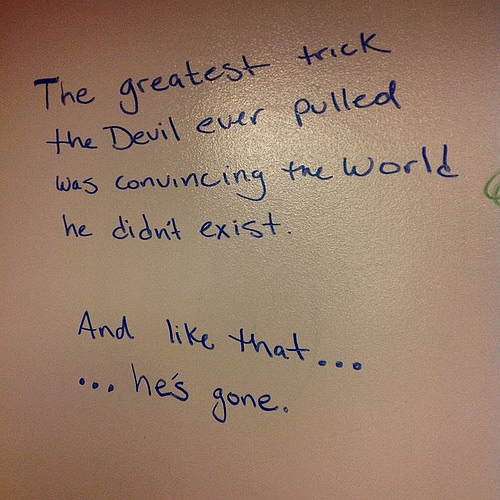 The greatest trick
the Devil ever pulled
was convincing the World
he didn't exist.
And like that...
...he's gone.